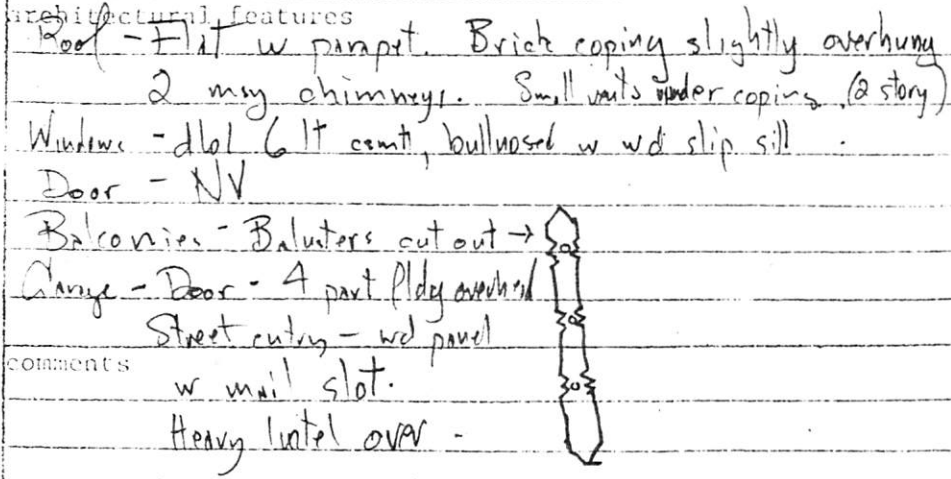 architectural features
Roof - Flat w parapet. Brick coping slightly overhung
2 msy chimneys. Small vents under coping. (2 story)
Windows - dbl 6 lt csmt, bullnosed w wd slip sill
Door - NV
Balconies - Balusters cut out →
Garage - Door - 4 part fldg overhead
Street entry - wd panel
comments
w mail slot.
Heavy lintel over -